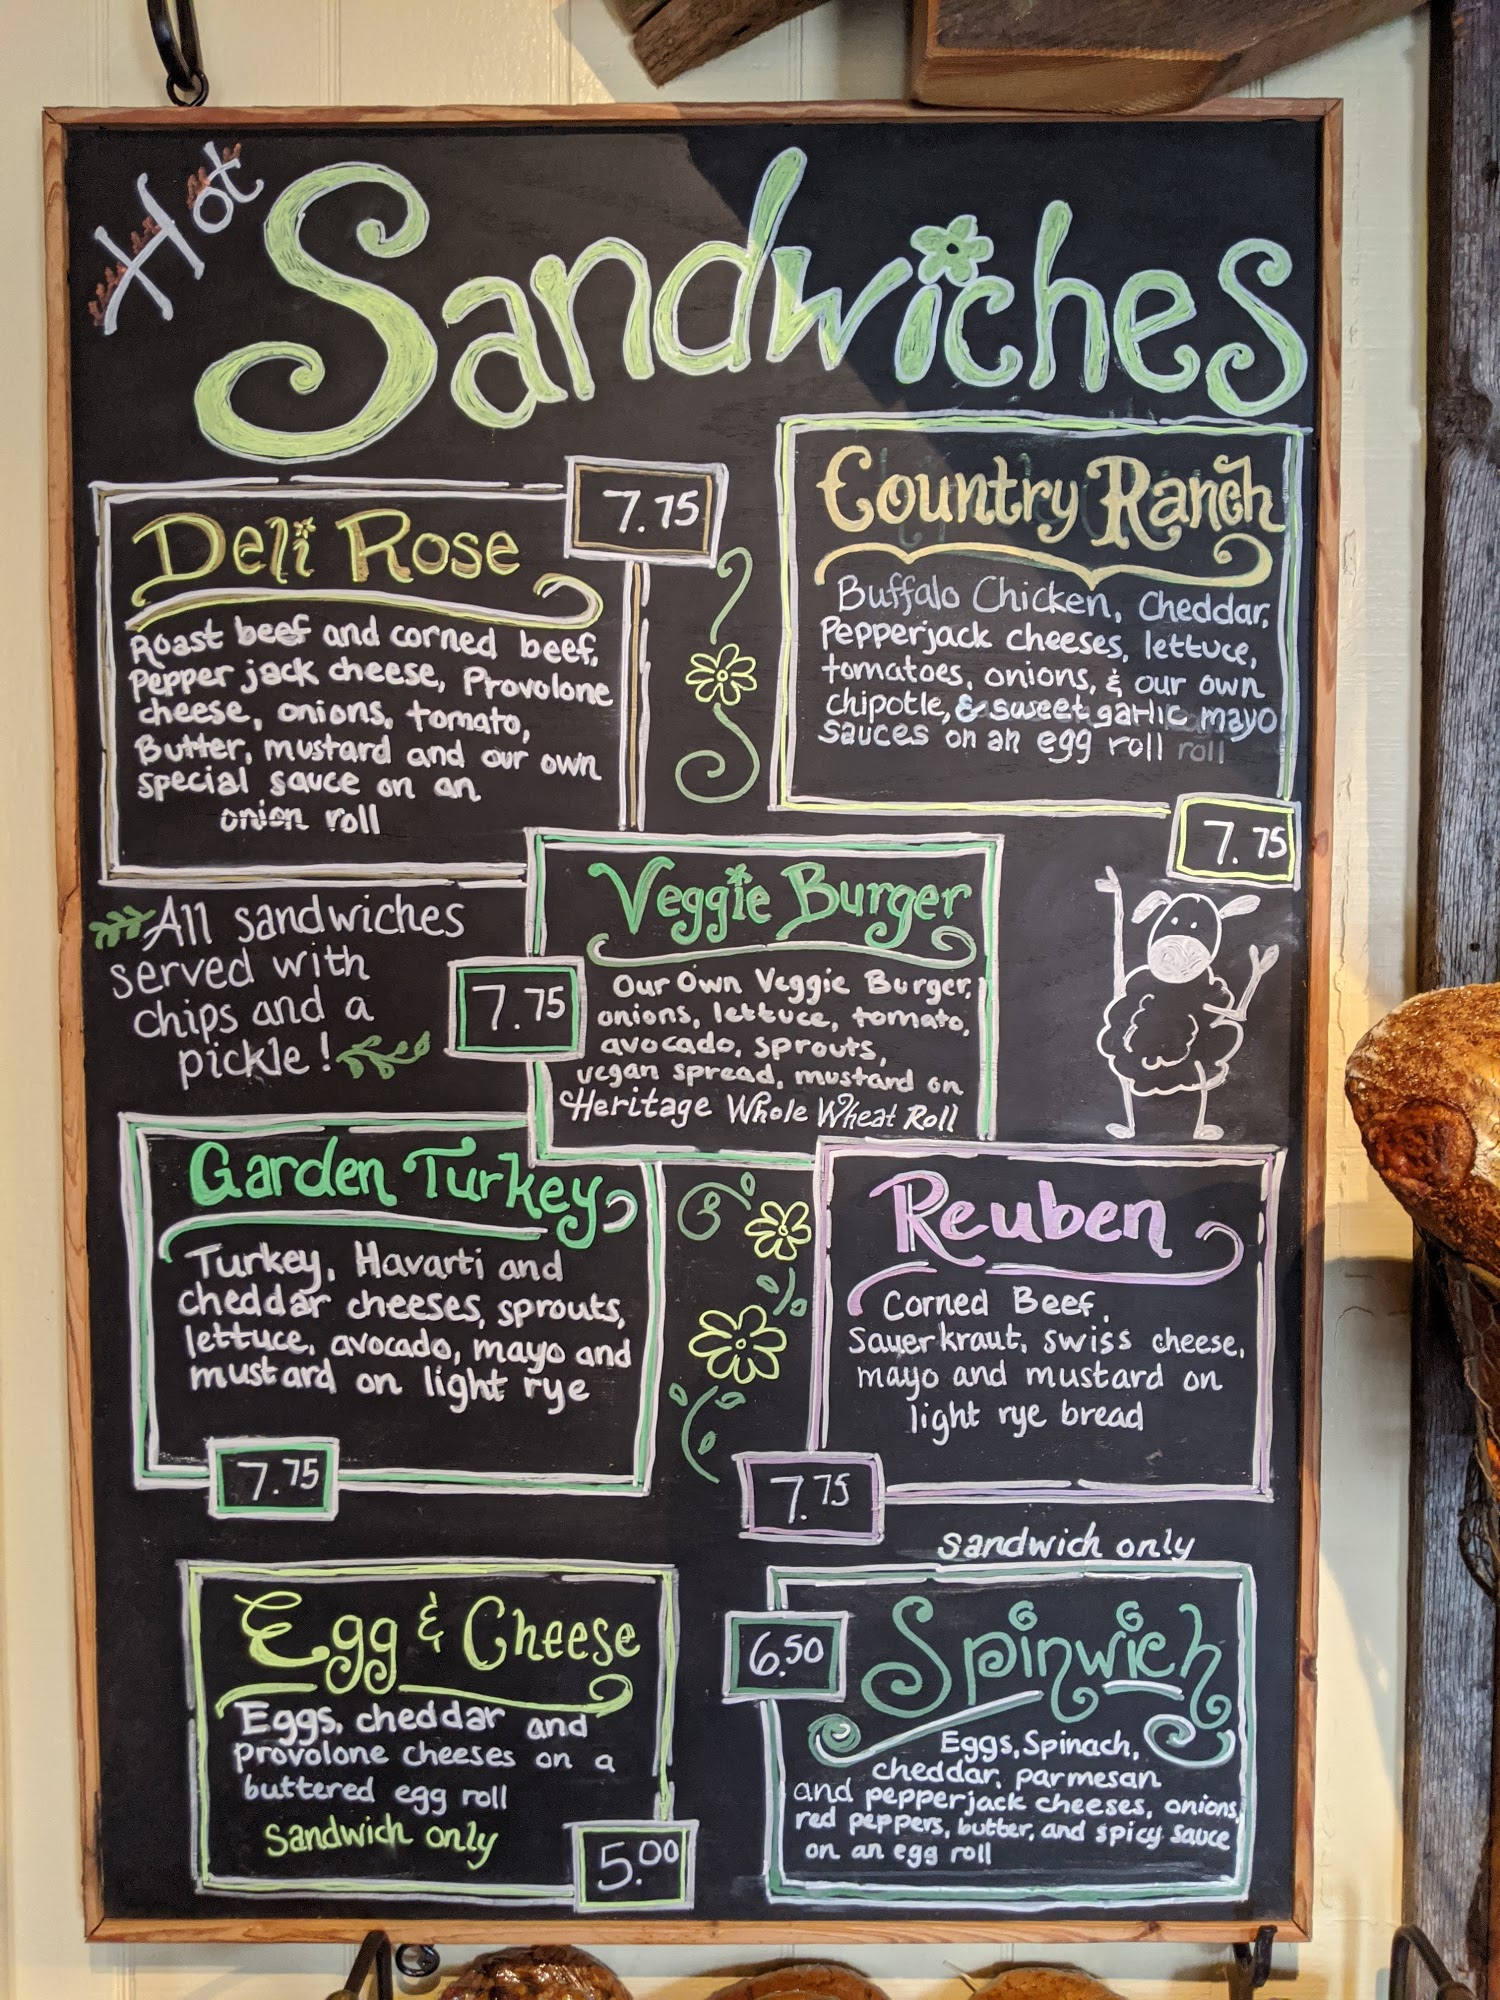 Hot
Sandwiches
Deli Rose
7.75
Roast beef and corned beef,
Pepper jack cheese, Provolone
cheese, onions, tomato,
Butter, mustard and our own
special sauce on an
onion roll
Country Ranch
Buffalo Chicken, Cheddar,
Pepperjack cheeses, lettuce,
tomatoes, onions, & our own
chipotle, & sweet garlic mayo
sauces on an egg roll roll
7.75
All sandwiches
served with
chips and a
pickle!
Veggie Burger
7.75
Our Own Veggie Burger,
onions, lettuce, tomato,
avocado, sprouts,
vegan spread, mustard on
Heritage Whole Wheat Roll
Garden Turkey
Turkey, Havarti and
cheddar cheeses, sprouts,
lettuce, avocado, mayo and
mustard on light rye
7.75
Reuben
Corned Beef,
Sauerkraut, swiss cheese,
mayo and mustard on
light rye bread
7.75
Egg & Cheese
Eggs, cheddar and
provolone cheeses on a
buttered egg roll
Sandwich only
5.00
sandwich only
6.50
Spinwich
Eggs, Spinach,
cheddar, parmesan
and pepperjack cheeses, onions,
red peppers, butter, and spicy sauce
on an egg roll